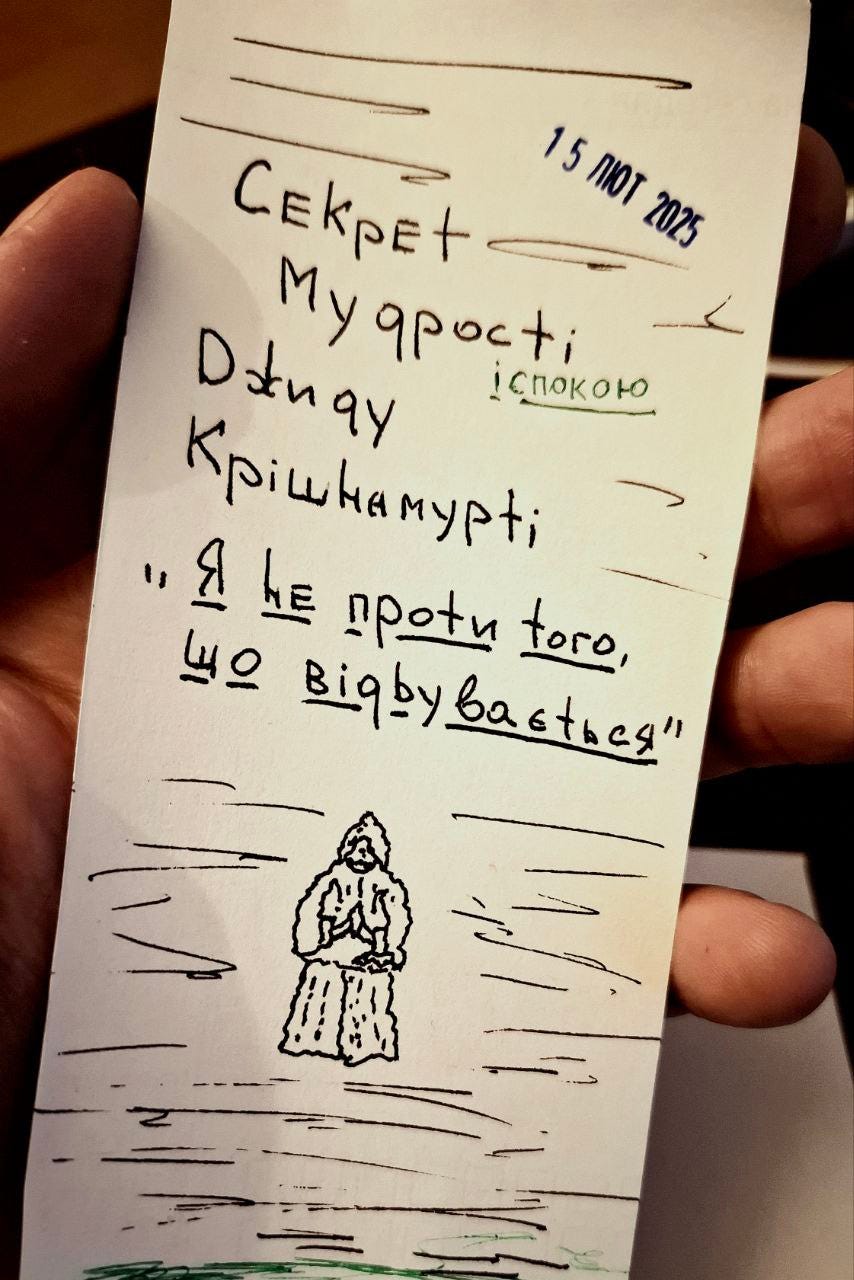 15 ЛЮТ 2025
Секрет
Мудрості
і спокою
Джиду
Крішнамурті
"Я не проти того,
що відбувається"